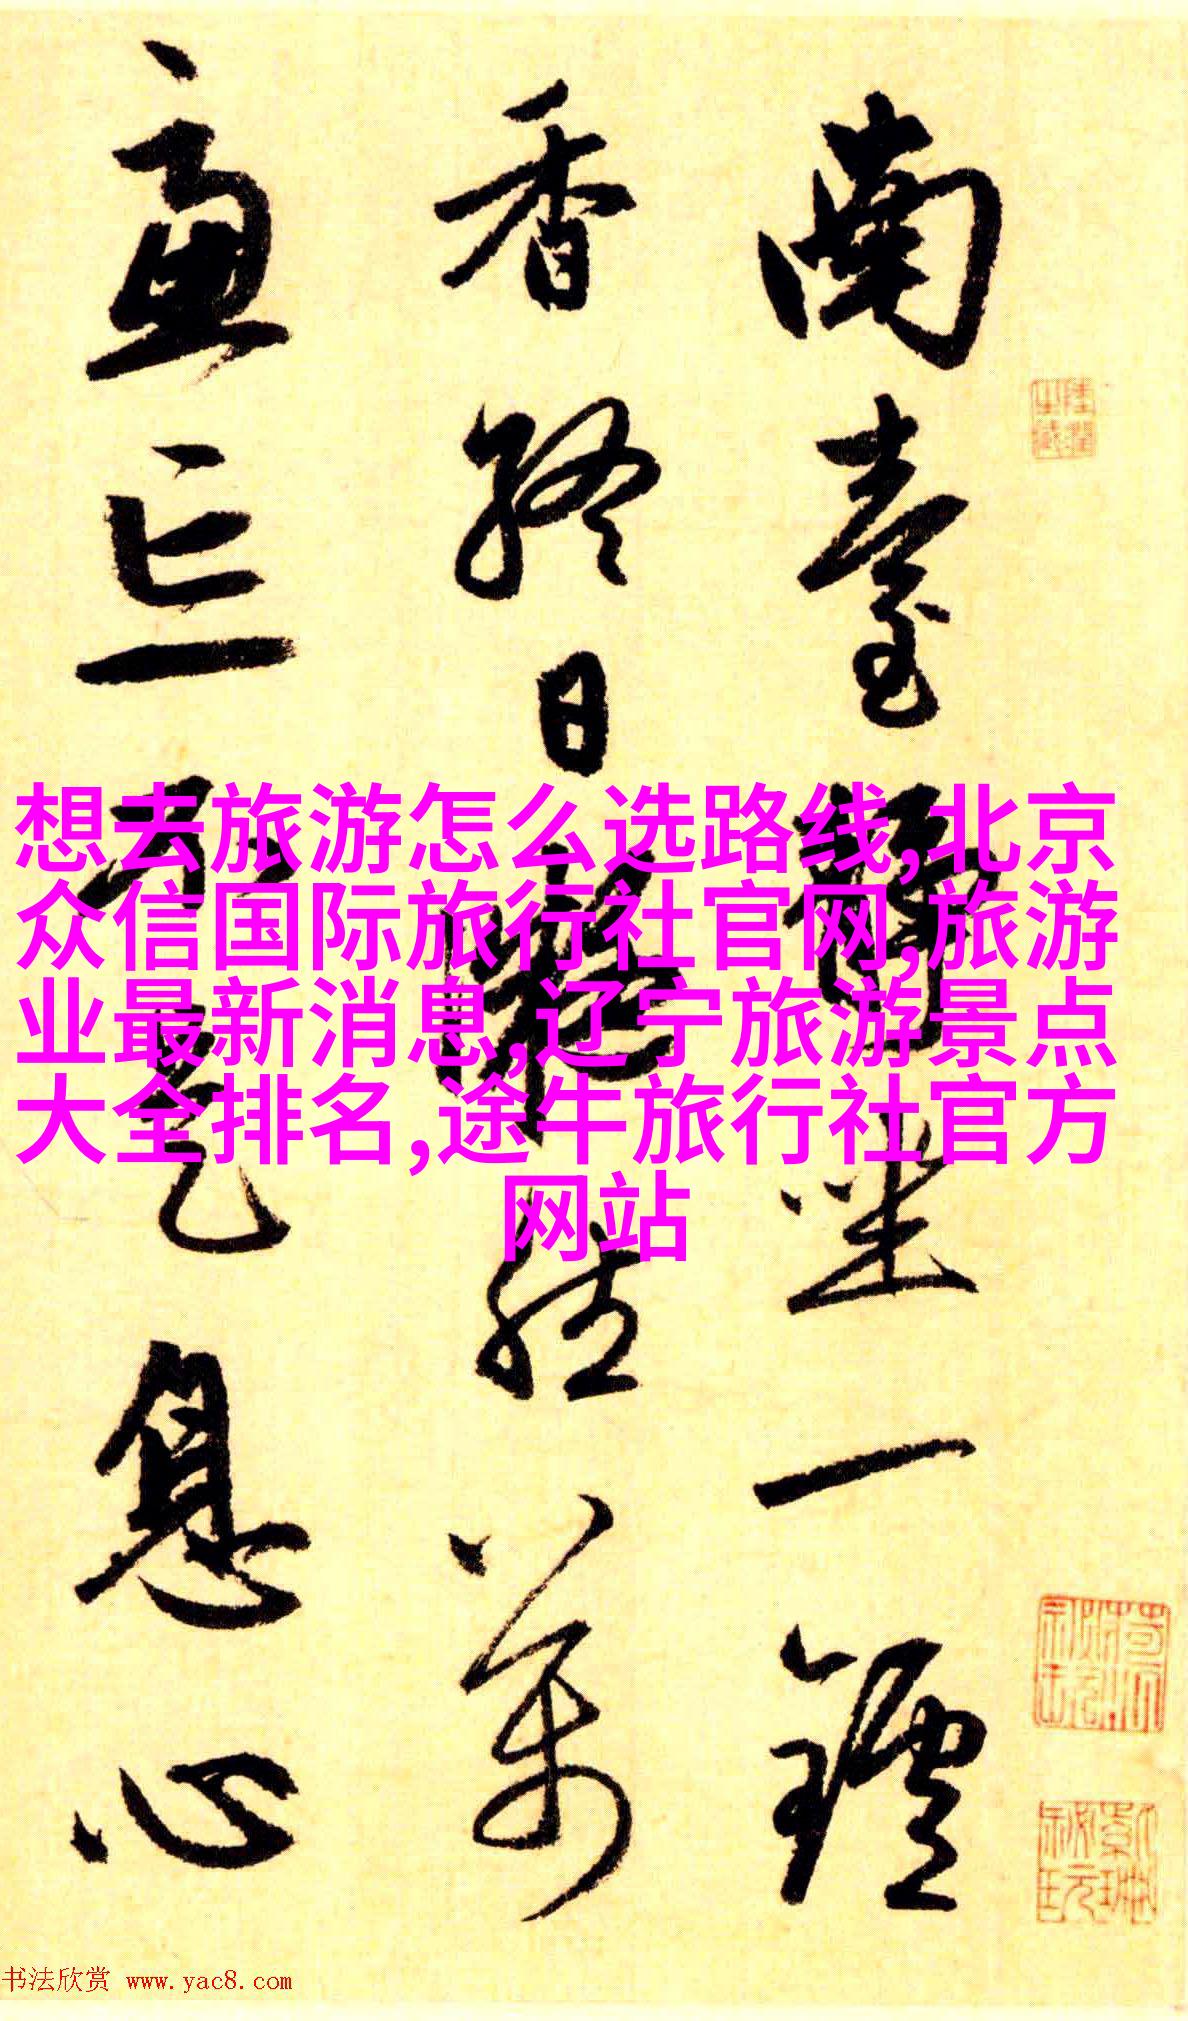 南臺靜坐一鑪
香終日凝然萬
慮亡不是息心
想去旅游怎么选路线,北京
众信国际旅行社官网,旅游
业最新消息,辽宁旅游景点
大全排名,途牛旅行社官方
网站
书法欣赏 www.yac8.com